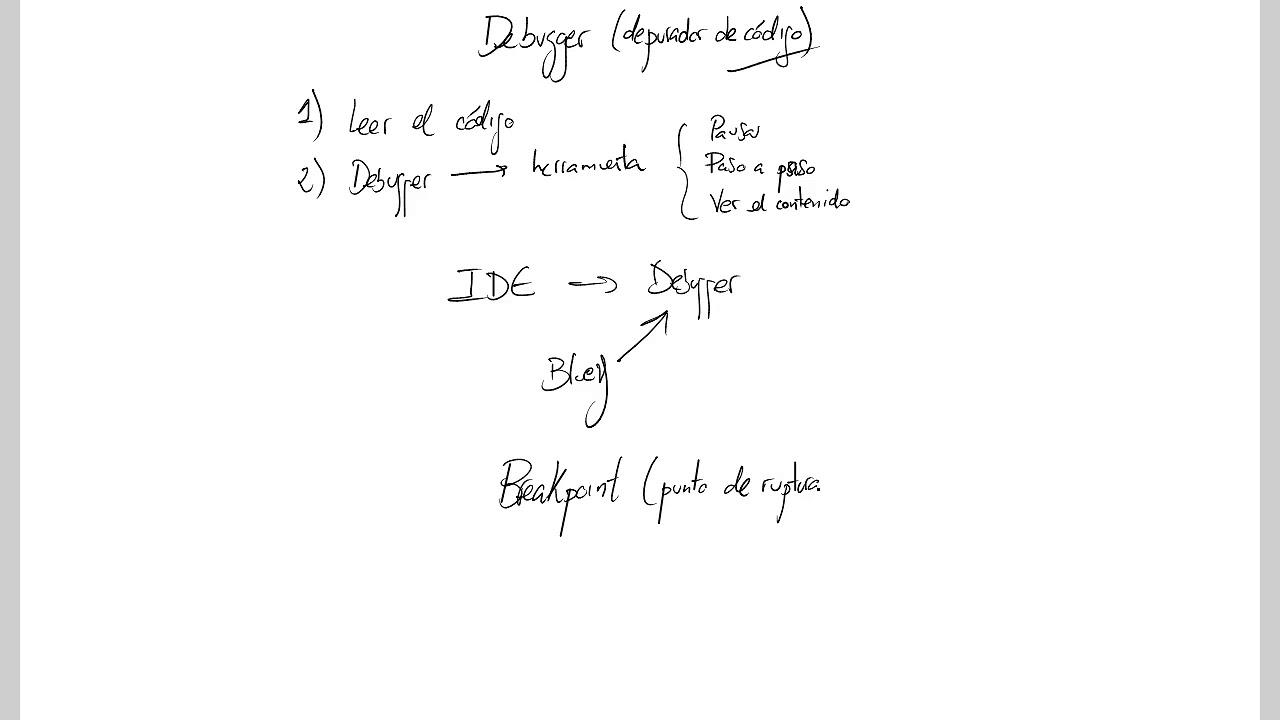 Debugger (depurador de código)
1) Leer el código
2) Debugger → herramienta { Pausar
Paso a paso
Ver el contenido
IDE → Debugger
BlueJ
Breakpoint (punto de ruptura